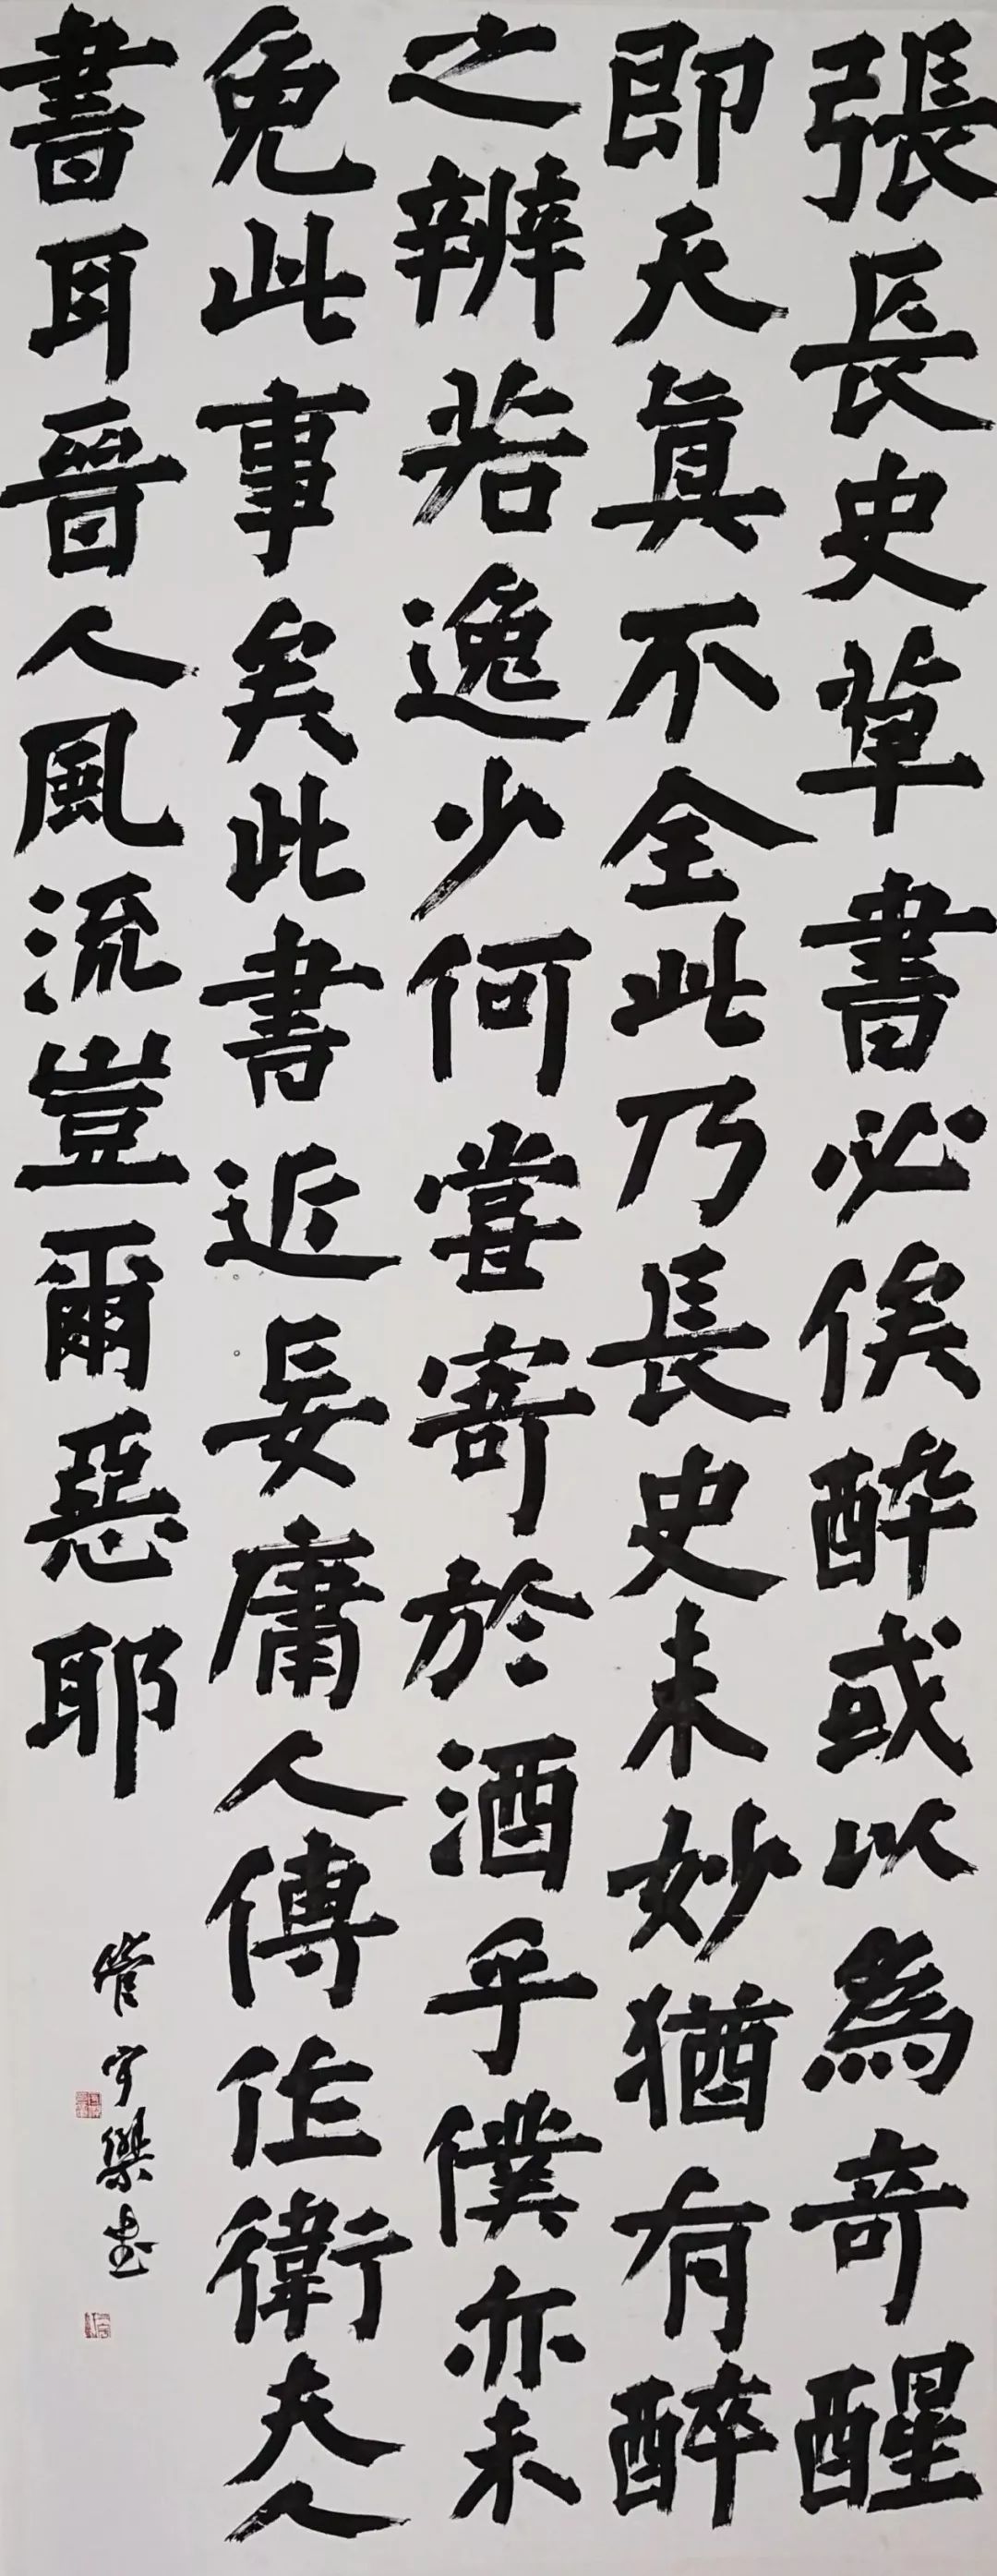 張長史草書必俟醉或以為奇醒
即天真不全此乃長史未妙猶有醉
之辨若逸少何嘗寄於酒乎僕亦未
免此事矣此書近妄庸人傳作衛夫人
書耳晉人風流豈爾惡耶
管宇樂書